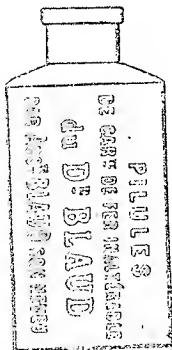 PILULES
DE CARB. DE FER INALTÉRABLE
du Dr BLAUD
BLAUD SON NEVEU